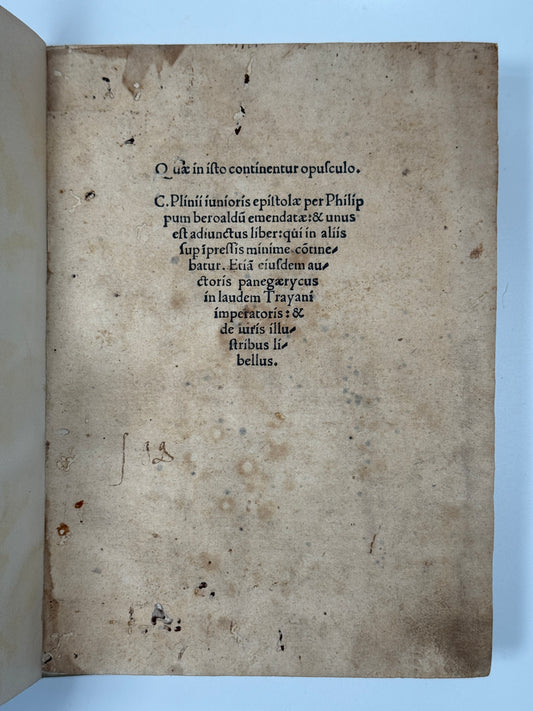 Quæ in iſto continentur opuſculo.
C. Plinii iunioris epiſtolæ per Philip
pum beroaldū emendatæ: & unus
eſt adiunctus liber: qui in aliis
ſup īpreſſis minime cōtine⸗
batur. Etiā eiuſdem au⸗
ctoris panegærycus
in laudem Trayani
imperatoris: &
de uiris illu⸗
ſtribus li⸗
bellus.